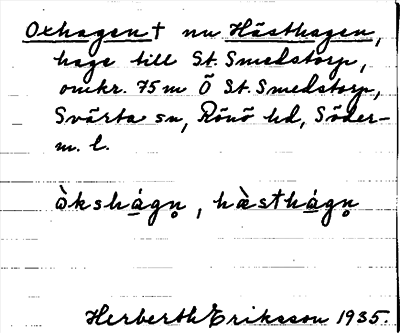 Oxhagen † nu Hästhagen,
hage till St. Smedstorp,
omkr. 75 m Ö St. Smedstorp,
Svärta sn, Rönö hd, Söder-
m. l.
òkshágn̥, hæ̀sthágn̥
Herberth Eriksson 1935.